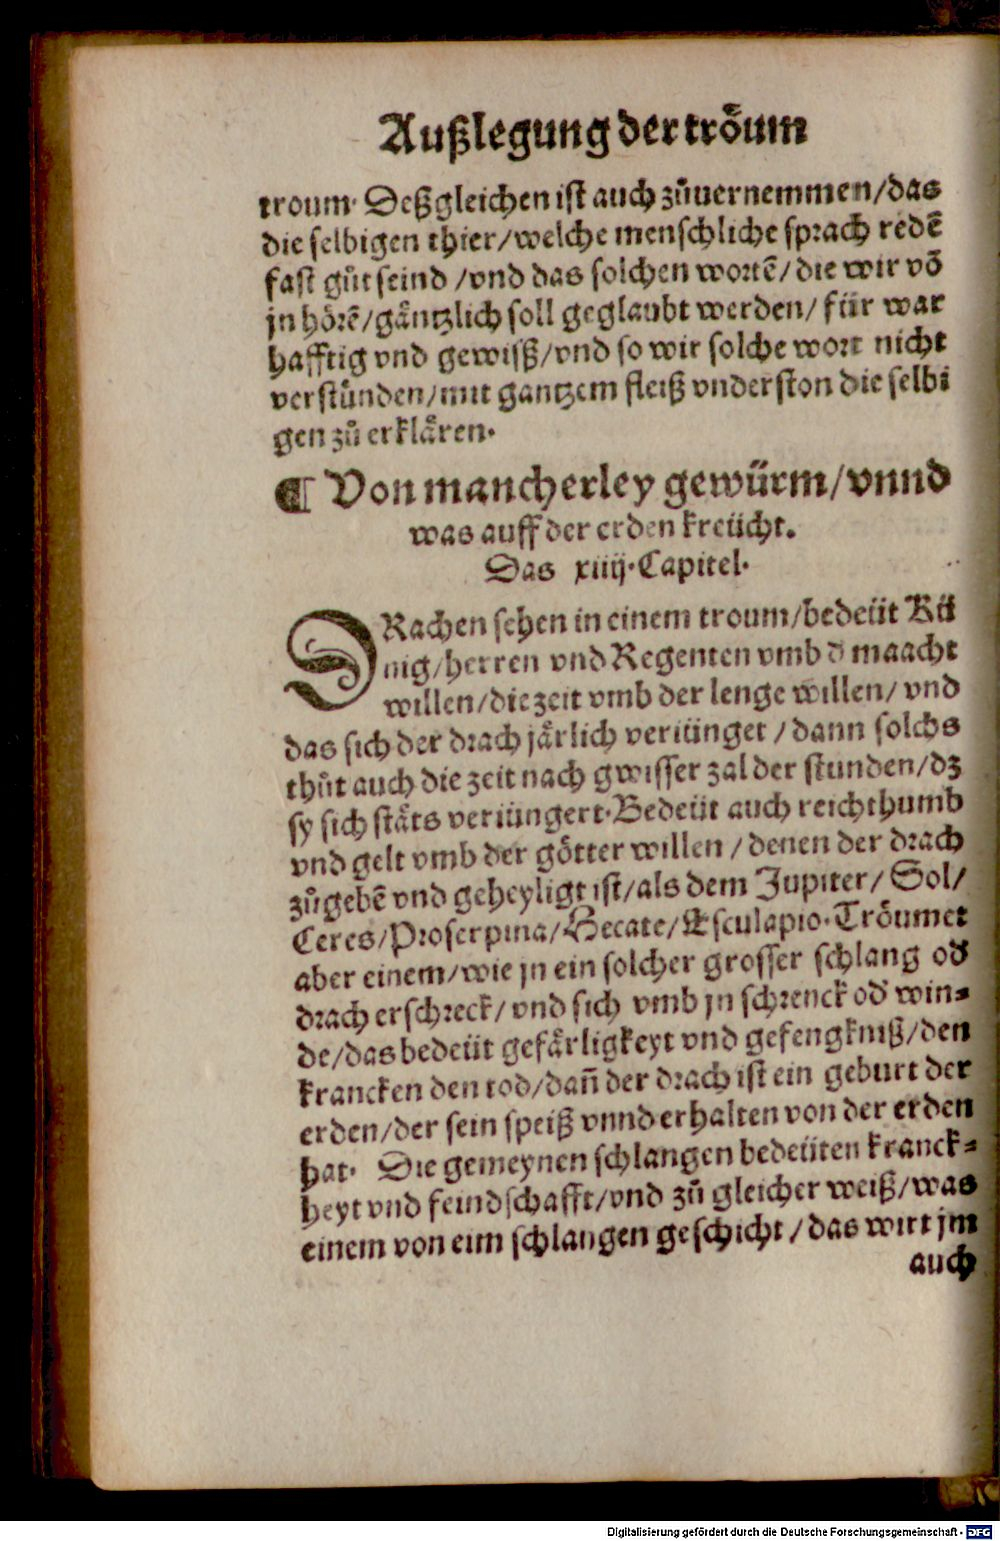 Außlegung der tröum
troum. Deßgleichen ist auch zůuernemmen/das
die selbigen thier/welche menschliche sprach redē
fast gůt seind /vnd das solchen wortē/die wir vō
jn hörē/gäntzlich soll geglaubt werden/ für war
hafftig vnd gewiß/vnd so wir solche wort nicht
verstünden/mit gantzem fleiß vnderston die selbi
gen zů erklären.
¶ Von mancherley gewürm/vnnd
was auff der erden kreücht.
Das xiiij. Capitel.
DRachen sehen in einem troum/bedeüt Kü
nig/herren vnd Regenten vmb d maacht
willen/die zeit vmb der lenge willen/ vnd
das sich der drach järlich veriünget /dann solchs
thůt auch die zeit nach gwisser zal der stunden/dz
sy sich stäts veriüngert. Bedeüt auch reichthumb
vnd gelt vmb der götter willen /denen der drach
zůgebē vnd geheyligt ist/als dem Jupiter/ Sol/
Ceres/Proserpina/Hecate/Esculapio. Tröumet
aber einem/wie jn ein solcher grosser schlang od
drach erschreck/vnd sich vmb jn schrenck od win-
de/das bedeüt gefärligkeyt vnd gefengkniß/den
krancken den tod/dañ der drach ist ein geburt der
erden/der sein speiß vnnd erhalten von der erden
hat. Die gemeynen schlangen bedeüten kranck-
heyt vnd feindschafft/vnd zů gleicher weiß/was
einem von eim schlangen geschicht /das wirt jm
auch
Digitalisierung gefördert durch die Deutsche Forschungsgemeinschaft - DFG